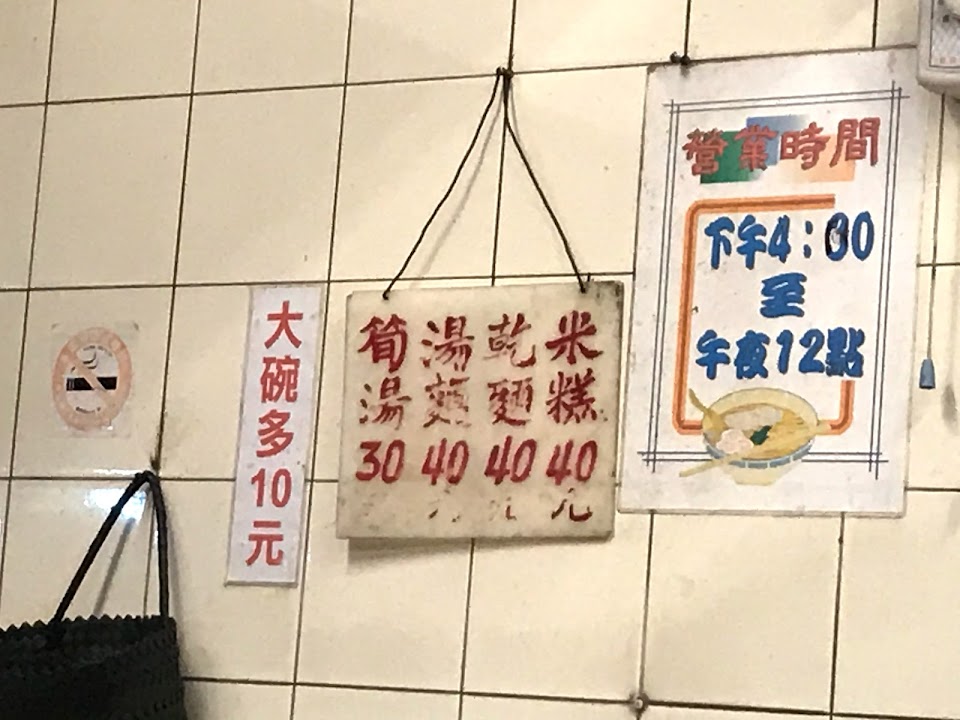 大碗多10元
米糕40元
乾麵40元
湯麵40
筍湯30
營業時間
下午4:30
至
午夜12點